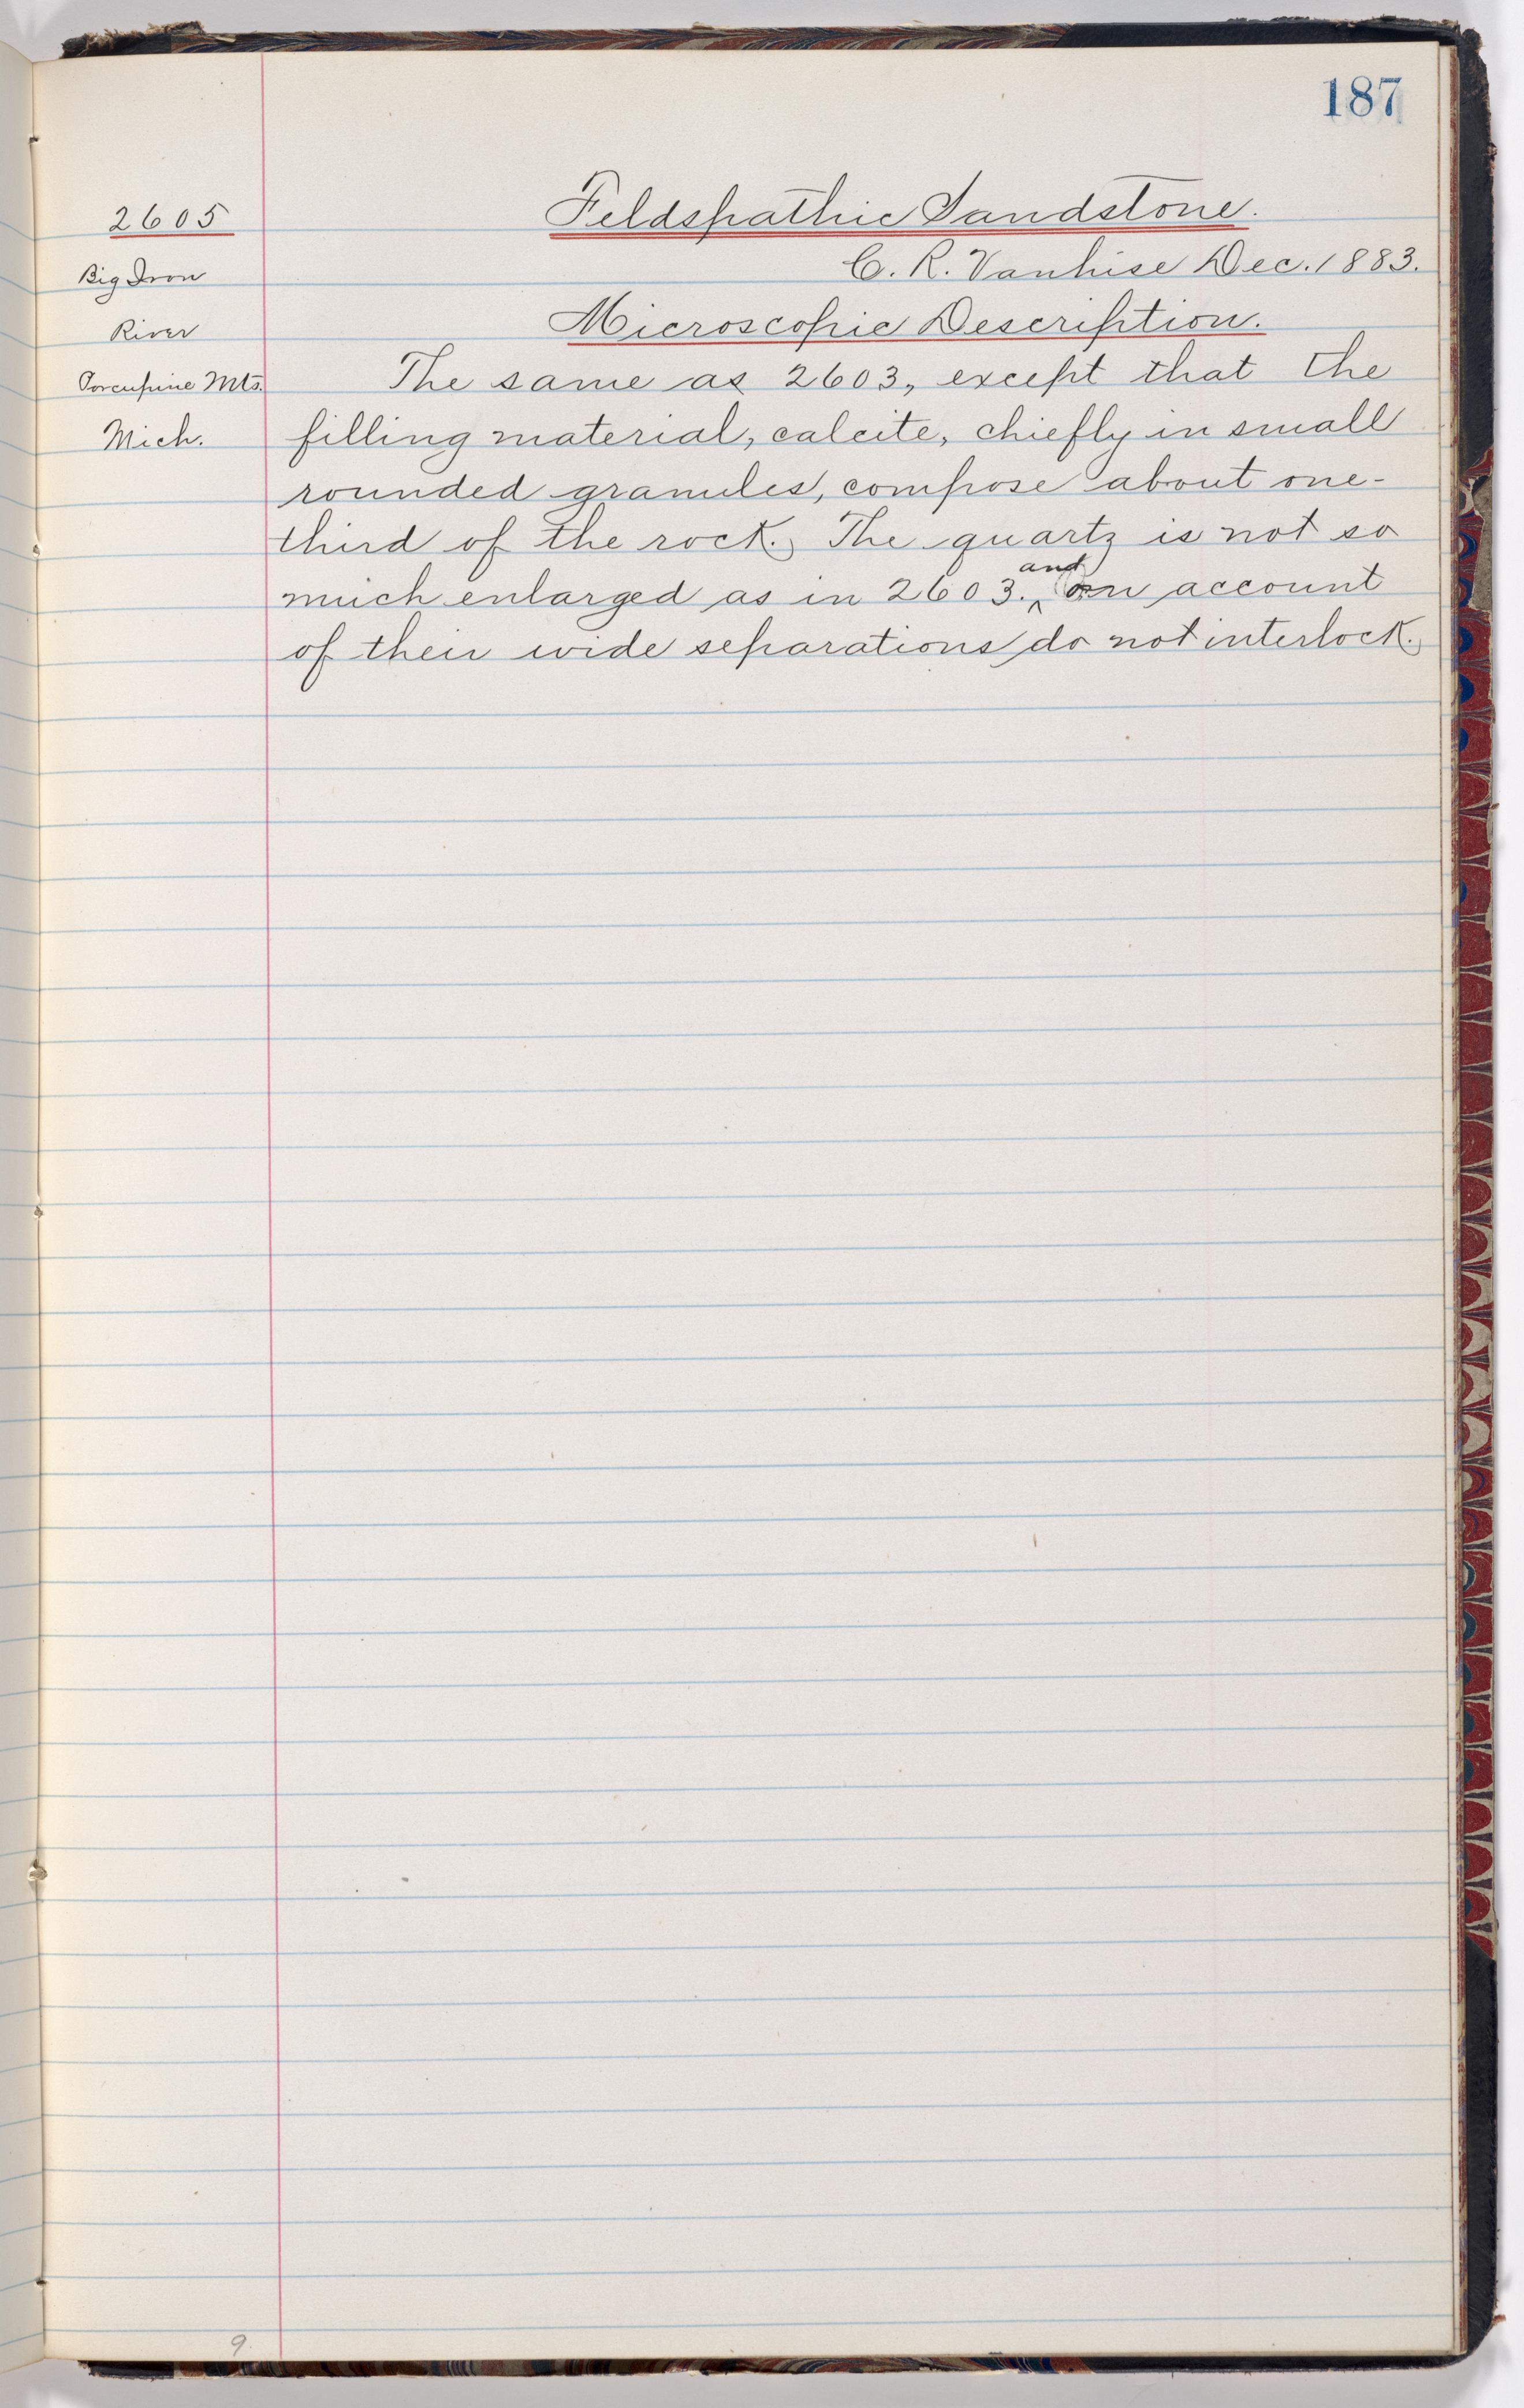 187
2605
Feldspathic Sandstone.
Big Iron
C. R. Vanhise Dec. 1883.
River
Microscopic Description.
Porcupine Mts.
The same as 2603, except that the
Mich.
filling material, calcite, chiefly in small
rounded granules, compose about one-
third of the rock. The quartz is not so
and
much enlarged as in 2603.‸ on account
of their wide separations do not interlock.
9.